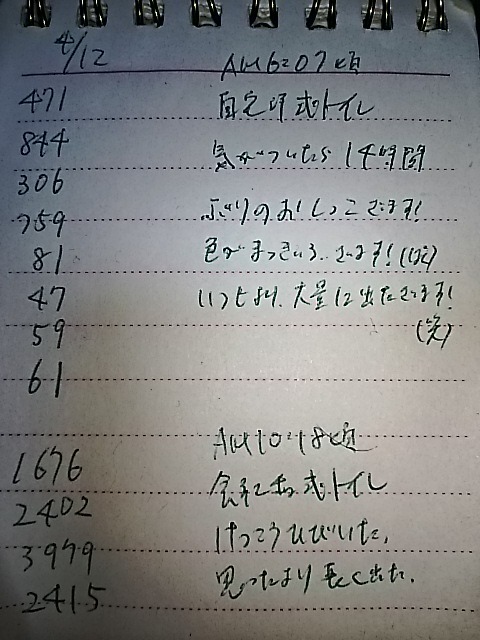 4/12
AM6:07頃
471
自宅洋式トイレ
844
気がついたら14時間
306
759
ぶりのおしっこでます!
81
色がまっきいろ、でます!(笑)
47
いつもより、大量に出たでます!
59
(笑)
61
AM10:18頃
1676
会社和式トイレ
2402
けっこうひびいた。
3979
思ったより長く出た。
2415